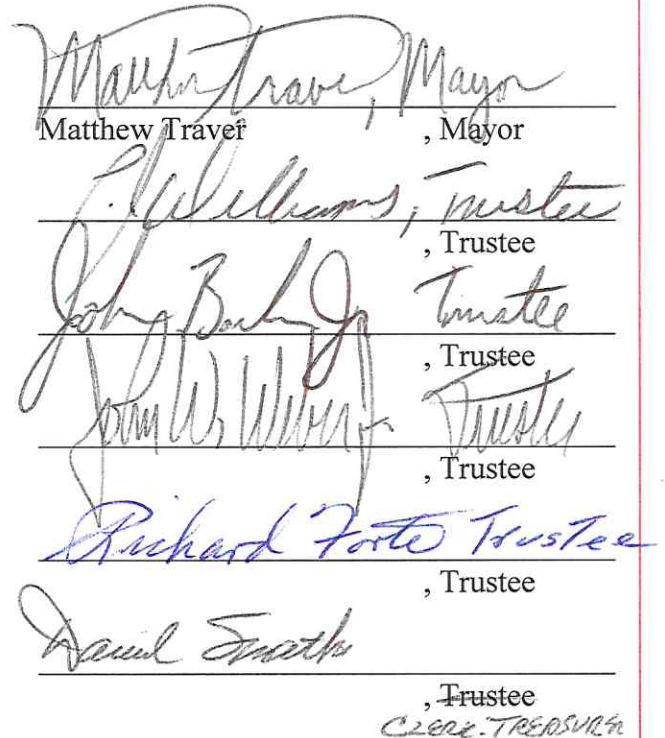 Matthew Traver, Mayor
Matthew Traver , Mayor
Williams, Trustee
, Trustee
John Trustee
, Trustee
John W. Trustee
, Trustee
Richard Forte Trustee
, Trustee
Daniel
, Trustee
CLERK-TREASURER